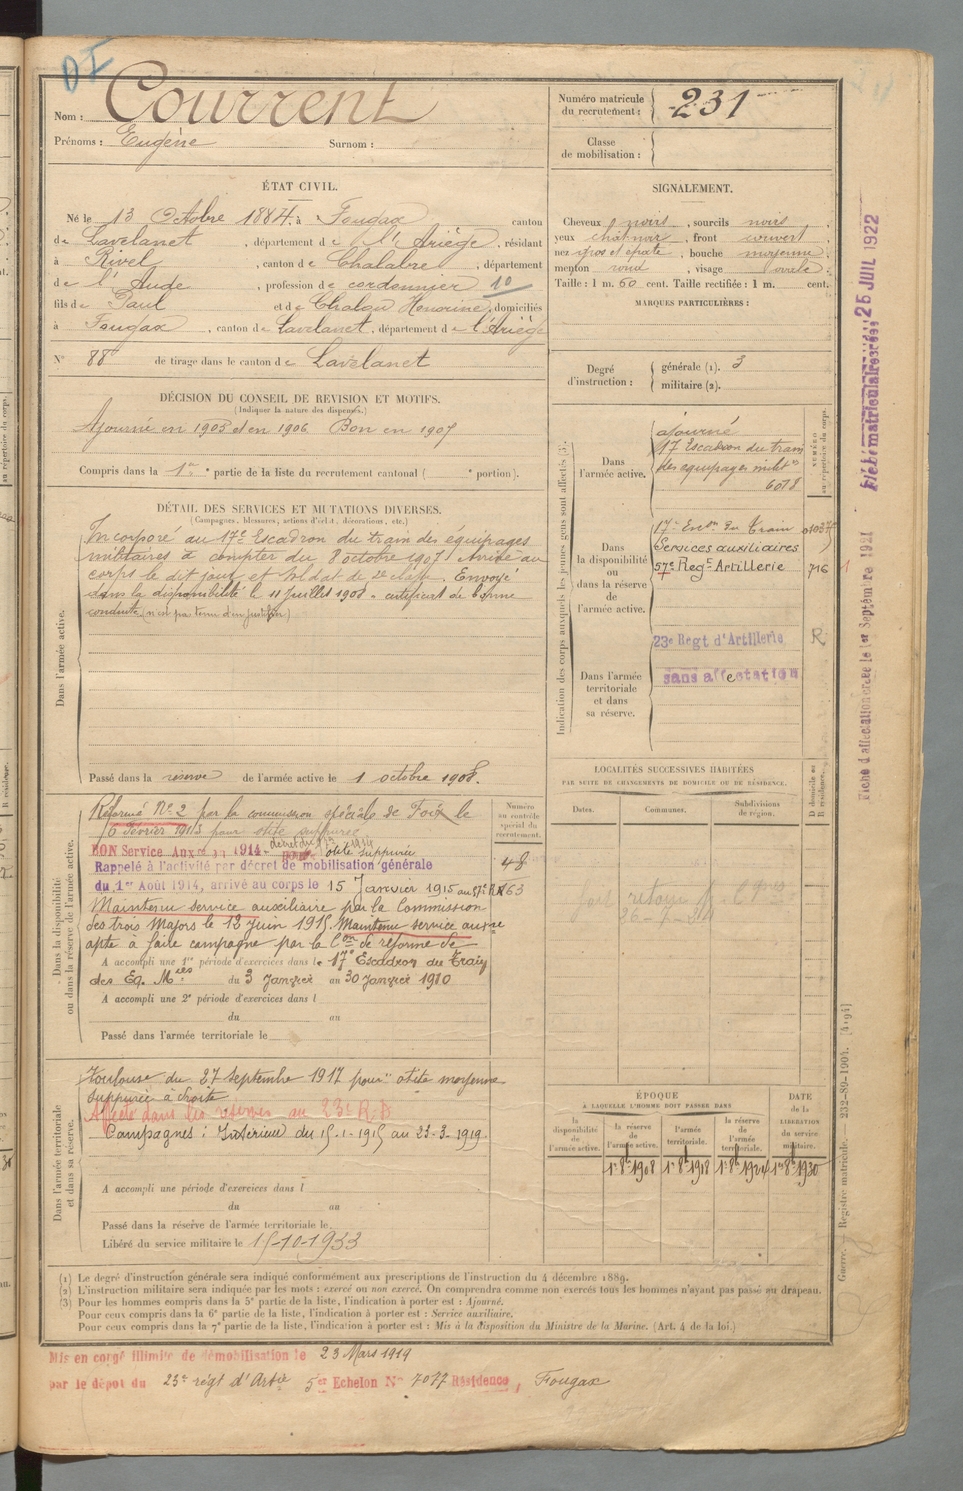 DI
Nom : Courrent
Prénoms : Eugène Surnom :
Numéro matricule du recrutement : 231
Classe de mobilisation :
ÉTAT CIVIL.
Né le 13 Octobre 1884, à Fougax canton
de Lavelanet, département de l'Ariège, résidant
à Rivel, canton de Chalabre, département
de l'Aude, profession de cordonnier 10
fils de Paul et de Chalgu Honorine, domiciliés
à Fougax, canton de Lavelanet, département de l'Ariège
N° 88 de tirage dans le canton de Lavelanet
SIGNALEMENT.
Cheveux noirs, sourcils noirs,
yeux , front couvert,
nez gros et épaté, bouche moyenne,
menton rond, visage ovale.
Taille : 1 m. 60 cent. Taille rectifiée : 1 m. cent.
MARQUES PARTICULIÈRES :
Degré d'instruction : générale (1). 3
militaire (2).
DÉCISION DU CONSEIL DE REVISION ET MOTIFS.
(Indiquer la nature des dispenses.)
Ajourné en 1905 et en 1906 Bon en 1907
Compris dans la 1re partie de la liste du recrutement cantonal ( portion).
DÉTAIL DES SERVICES ET MUTATIONS DIVERSES.
(Campagnes, blessures, actions d'éclat, décorations, etc.)
Dans l'armée active.
Incorporé au 17e Escadron du train des équipages
militaires à compter du 8 octobre 1907 Arrivé au
corps le dit jour et soldat de 2e classe. Envoyé
dans la disponibilité le 11 juillet 1908. certificat de bonne
conduite
Passé dans la réserve de l'armée active le 1 octobre 1908.
Indication des corps auxquels les jeunes gens sont affectés (3).
NUMÉRO au répertoire du corps.
Dans l'armée active.
ajourné
17 Escadron du train
des équipages milit
6018
Dans la disponibilité ou dans la réserve de l'armée active.
17e Escon du Train
Services auxiliaires
57e Regt Artillerie 716
23e Regt d'Artillerie R
Dans l'armée territoriale et dans sa réserve.
sans affectation
LOCALITÉS SUCCESSIVES HABITÉES
PAR SUITE DE CHANGEMENTS DE DOMICILE OU DE RÉSIDENCE.
D domicile ou R résidence.
Dates. Communes. Subdivisions de région.
26-7-
Dans la disponibilité ou dans la réserve de l'armée active.
Numéro au contrôle spécial du recrutement.
Réformé N° 2 par la commission spéciale de Foix le
6 Février 1913 pour otite suppurée
BON Service Aux 1914 pour otite suppurée
Rappelé à l'activité par décret de mobilisation générale 48
du 1er Août 1914, arrivé au corps le 15 Janvier 1915 au 57e RA 63
Maintenu service auxiliaire par la Commission
des trois Majors le 12 juin 1915. Maintenu service auxre
apte à faire campagne par la Con de réforme de
A accompli une 1re période d'exercices dans le 17e Escadron du Train
des Eq. Mres du 3 Janvier au 30 Janvier 1910
A accompli une 2e période d'exercices dans l
du au
Passé dans l'armée territoriale le
Dans l'armée territoriale et dans sa réserve.
Toulouse du 27 septembre 1917 pour "otite moyenne
suppurée à droite
Affecté dans les réserves au 23e R.A.
Campagnes : Intérieur du 15-1-1915 au 23-3-1919.
A accompli une période d'exercices dans l
du au
Passé dans la réserve de l'armée territoriale le
Libéré du service militaire le 15-10-1933
ÉPOQUE
À LAQUELLE L'HOMME DOIT PASSER DANS
DATE de la LIBÉRATION du service militaire.
la disponibilité de l'armée active.
la réserve de l'armée active.
l'armée territoriale.
la réserve de l'armée territoriale.
1er 8bre 1908 1er 8bre 1918 1er 8bre 1924 1er 8bre 1930
(1) Le degré d'instruction générale sera indiqué conformément aux prescriptions de l'instruction du 4 décembre 1889.
(2) L'instruction militaire sera indiquée par les mots : exercé ou non exercé. On comprendra comme non exercés tous les hommes n'ayant pas passé au drapeau.
(3) Pour les hommes compris dans la 5e partie de la liste, l'indication à porter est : Ajourné.
Pour ceux compris dans la 6e partie de la liste, l'indication à porter est : Service auxiliaire.
Pour ceux compris dans la 7e partie de la liste, l'indication à porter est : Mis à la disposition du Ministre de la Marine. (Art. 4 de la loi.)
Mis en congé illimité de démobilisation le 23 Mars 1919
par le dépôt du 23e régt d'Artie 5er Echelon N° 7077 Résidence, Fougax
Fiche matriculaire 25 JUIL 1922
Fiche d'affectation le 1er Septembre 1921
Guerre. — Registre matricule. 232-89-1904. [4194]